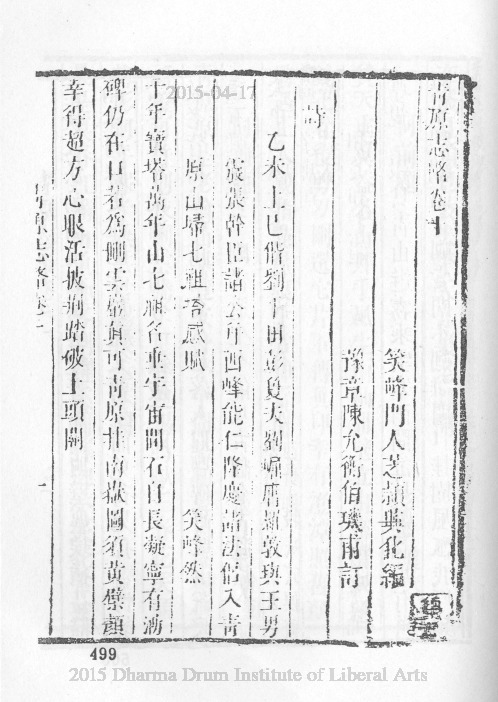 青原志略卷十
笑峰門人芝頴興化編
豫章陳允衡伯璣甫訂
詩
乙未上巳偕劉千田彭夏夫劉嵋庸蕭敦璵王男
張幹臣諸公弁西峰能仁隆慶諸法侶入青
原山埽七祖塔感賦
笑峰然
十年寶塔萬年山七祖名垂宇宙間石自長凝寧有泐
碑仍在口若爲刪雲巖眞可靑原井南嶽圖須黃檗顏
幸得超方心眼活披荊踏破上頭關
原志略卷十
一
2015-04-17
499
2015 Dharma Drum Institute of Liberal Arts